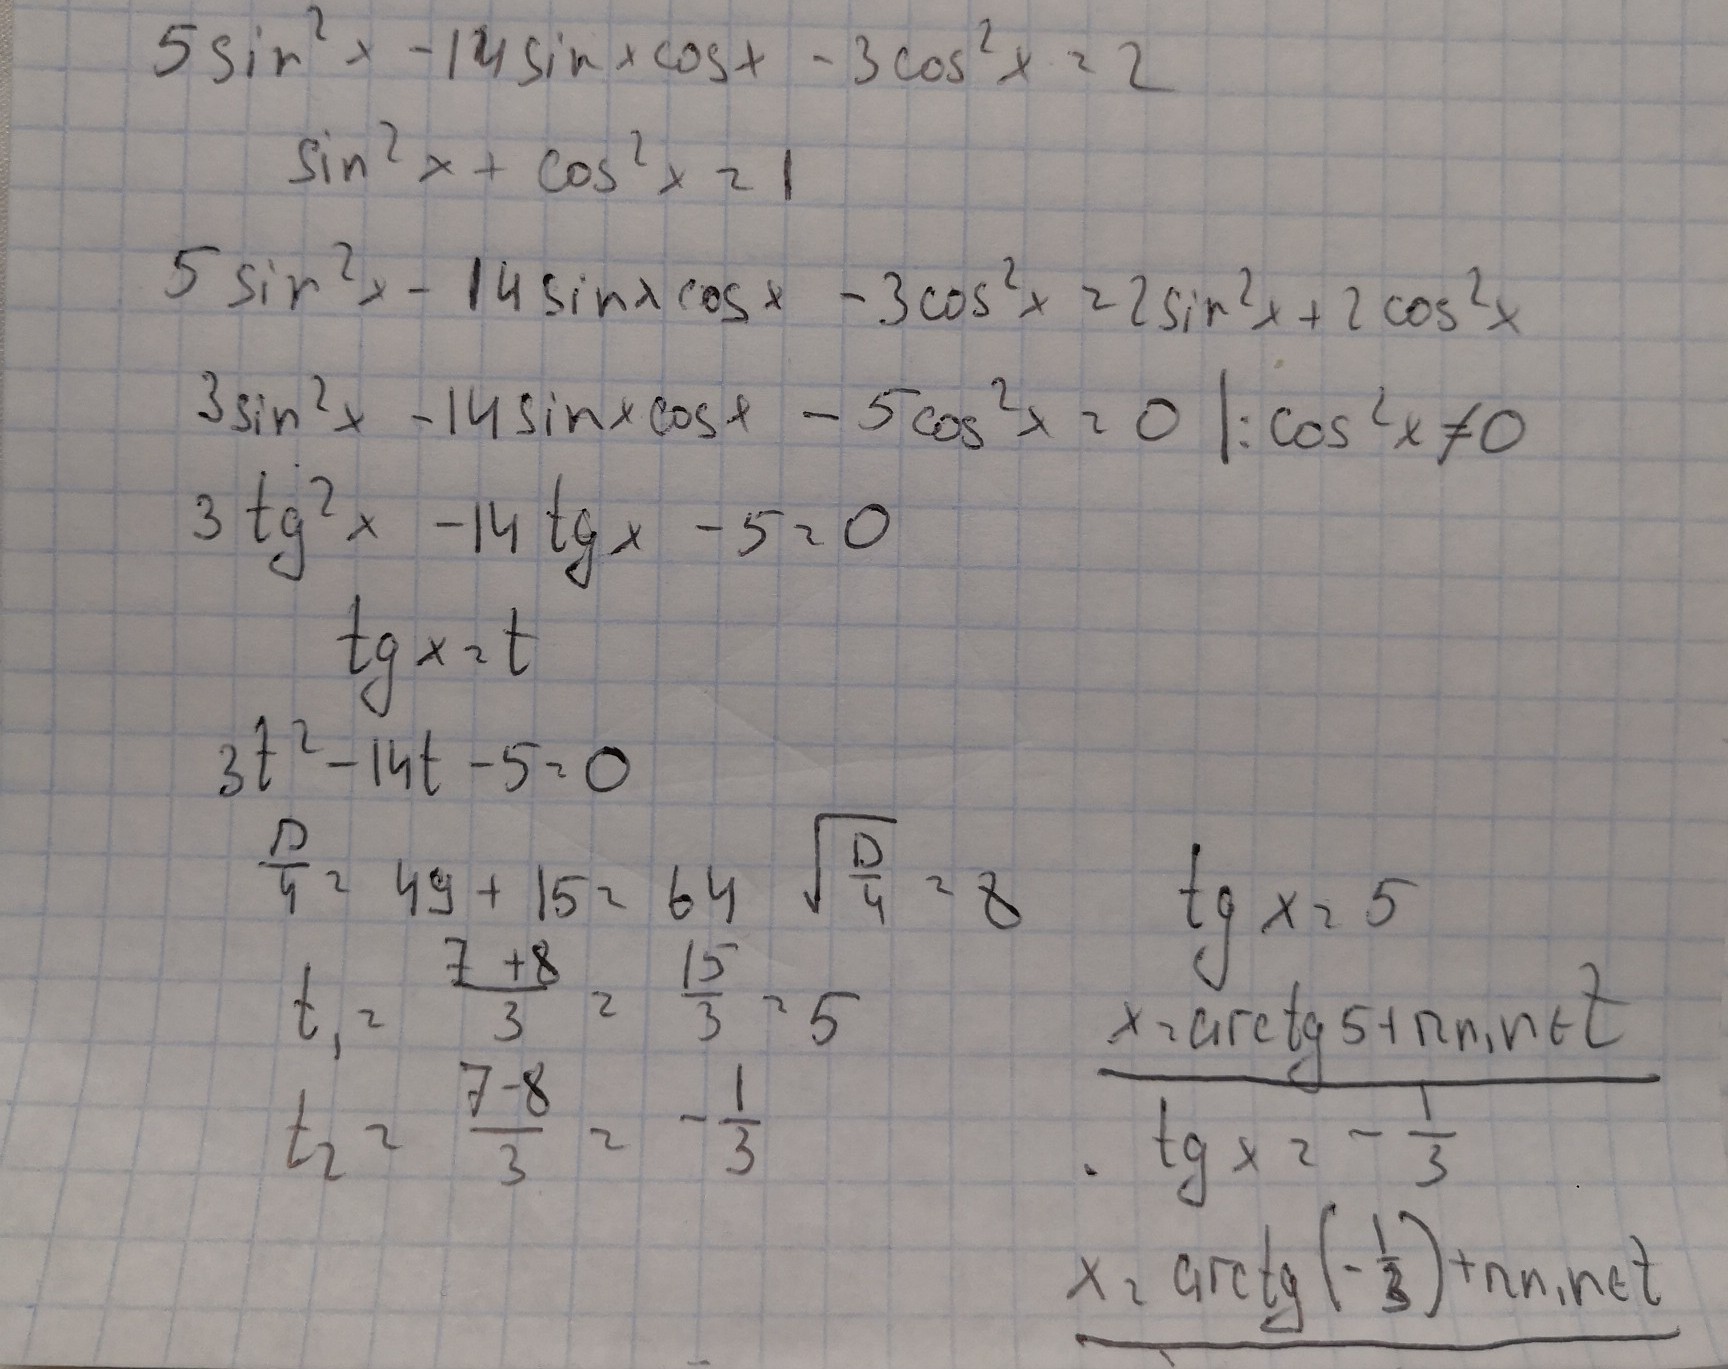 5sin²x -14sinxcosx -3cos²x=2
sin²x+cos²x=1
5sin²x-14sinxcosx -3cos²x=2sin²x+2cos²x
3sin²x -14sinxcosx -5cos²x=0 |:cos²x≠0
3tg²x -14tgx -5=0
tgx=t
3t²-14t-5=0
D/4=49+15=64 √(D/4)=8
t₁=(7+8)/3=15/3=5
t₂=(7-8)/3=-1/3
tgx=5
x=arctg5+πn,n∈Z
tgx=-1/3
x=arctg(-1/3)+πn,n∈Z